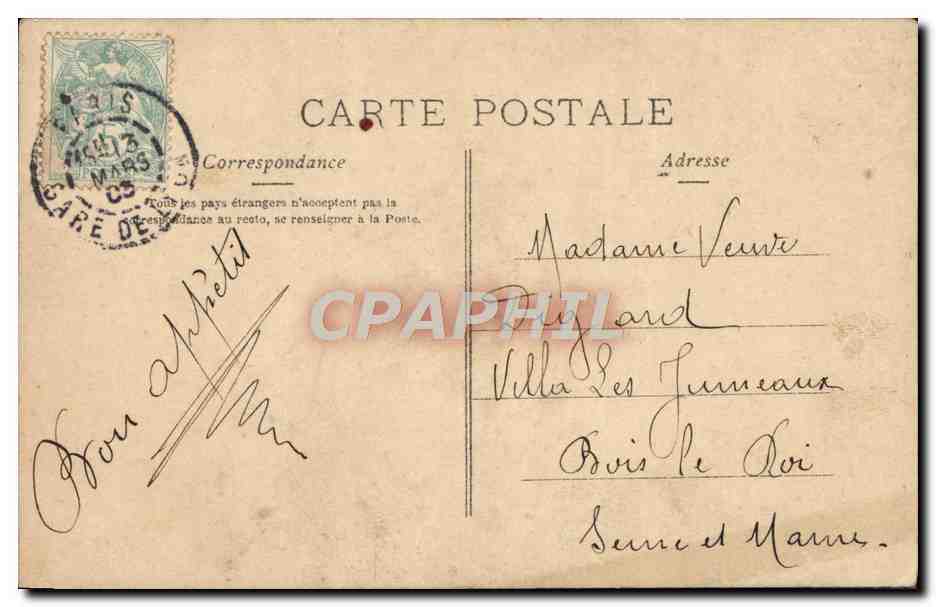 CARTE POSTALE
PARIS
13
MARS
05
GARE DE LYON
Correspondance
Tous les pays étrangers n'acceptent pas la
correspondance au recto, se renseigner à la Poste.
Bon appétit
Adresse
Madame Veuve
Digard
Villa Les Jumeaux
Bois le Roi
Seine et Marne.
CPAPHIL